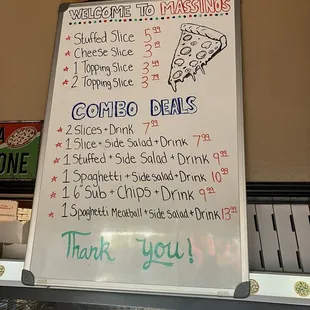 WELCOME TO MASSINOS
* Stuffed Slice 5.99
* Cheese Slice 3.19
* 1 Topping Slice 3.49
* 2 Topping Slice 3.79
COMBO DEALS
* 2 Slices + Drink 7.99
* 1 Slice + Side Salad + Drink 7.99
* 1 Stuffed + Side Salad + Drink 9.99
* 1 Spaghetti + Side Salad + Drink 10.99
* 1 6" Sub + Chips + Drink 9.99
* 1 Spaghetti Meatball + side Salad + Drink 13.99
Thank you!
ONE